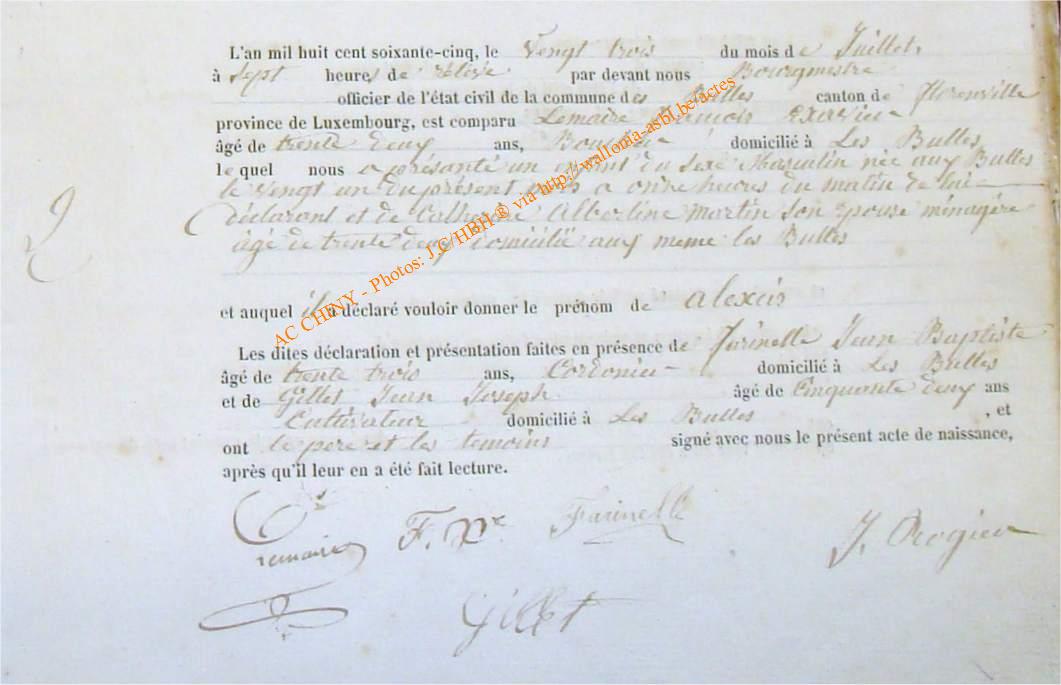 L'an mil huit cent soixante-cinq, le Vingt trois du mois de Juillet
à Sept heures de rélivé par devant nous Bourgmestre
officier de l'état civil de la commune des Bulles canton de florenville
province de Luxembourg, est comparu Lemaire
âgé de trente deux ans, domicilié à Les Bulles
le quel nous a présanté un enfant du Sexe Masculin née aux Bulles
le vingt un du présent mois a onze heures du matin de lui
déclarant et de Catherine Albertine martin Son épouse ménagère
âgé de trente deux domicilié aux meme les Bulles
et auquel il a déclaré vouloir donner le prénom de alexcis
Les dites déclaration et présentation faites en présence de farinelle Jean Baptiste
âgé de trente trois ans, Cordonier domicilié à Les Bulles
et de Gillet Jean Joseph âgé de Cinquante deux ans
Cultivateur domicilié à Les Bulles , et
ont le pere et les temoins signé avec nous le présent acte de naissance,
après qu'il leur en a été fait lecture.
Lemaire F. Farinelle J. Rogier
Gillet
AC CHINY - Photos: J.C/HBH ® via http://wallonia-asbl.be/actes